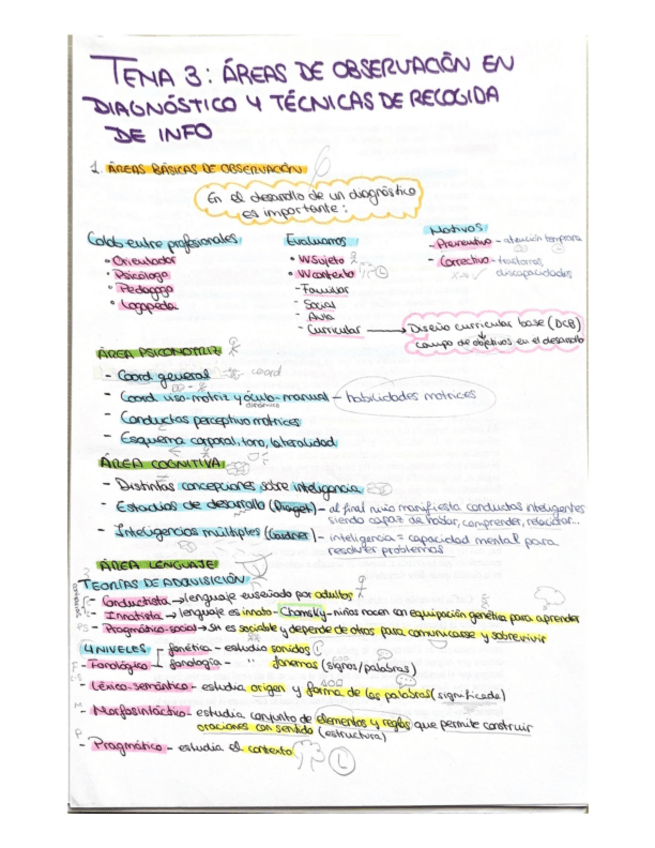 TEMA 3: ÁREAS DE OBSERVACIÓN EN
DIAGNÓSTICO Y TÉCNICAS DE RECOGIDA
DE INFO
1. ÁREAS BÁSICAS DE OBSERVACIÓN
En el desarrollo de un diagnóstico
es importante:
Colab entre profesionales
• Orientador
• Psicólogo
• Pedagogo
• Logopeda
Evaluamos
• W Sujeto
• W contexto
- Familiar
- Social
- Aula
- Curricular → Diseño curricular base (DCB)
campo de objetivos en el desarrollo
Motivos
- Preventivo - atención temprana
- Correctivo - trastornos,
discapacidades
ÁREA PSICOMOTRIZ
- Coord general - coord
- Coord viso-motriz y óculo-manual - habilidades motrices
dinámica
- Conductas perceptivo motrices
- Esquema corporal, tono, lateralidad
ÁREA COGNITIVA
- Distintas concepciones sobre inteligencia
- Estadios de desarrollo (Piaget) - al final niño manifiesta conductas inteligentes
siendo capaz de hablar, comprender, relacionar...
- Inteligencias múltiples (Gardner) - inteligencia = capacidad mental para
resolver problemas
ÁREA LENGUAJE
TEORÍAS DE ADQUISICIÓN
- Conductista → lenguaje enseñado por adultos
- Innatista → lenguaje es innato - Chomsky - niños nacen con equipación genética para aprender
PS - Pragmático-social → SH es sociable y depende de otros para comunicarse y sobrevivir
4 NIVELES
fonética - estudio sonidos
F - Fonológico
fonología - " fonemas (signos/palabras)
LS - Léxico-semántico - estudia origen y forma de las palabras (significado)
M - Morfosintáctico - estudia conjunto de elementos y reglas que permite construir
oraciones con sentido (estructura)
P - Pragmático - estudia el contexto